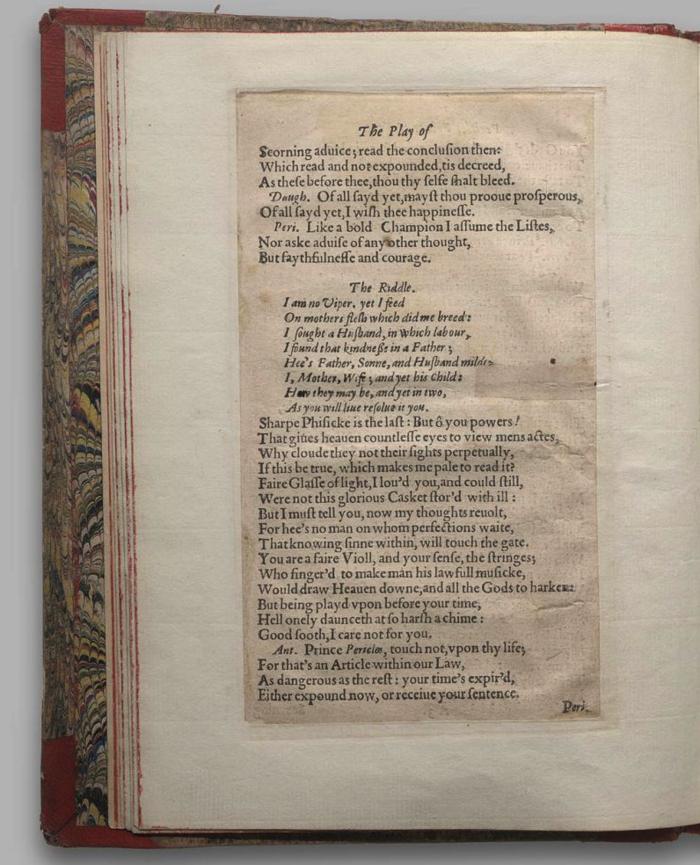 The Play of
Scorning aduice; read the conclusion then:
Which read and not expounded, tis decreed,
As these before thee, thou thy selfe shalt bleed.
Daugh. Of all sayd yet, mayst thou prooue prosperous,
Of all sayd yet, I wish thee happinesse.
Peri. Like a bold Champion I assume the Listes,
Nor aske aduise of any other thought,
But faythfulnesse and courage.
The Riddle.
I am no Viper, yet I feed
On mothers flesh which did me breed:
I sought a Husband, in which labour,
I found that kindnesse in a Father;
Hee's Father, Sonne, and Husband milde;
I, Mother, Wife; and yet his Child:
How they may be, and yet in two,
As you will liue resolue it you.
Sharpe Phisicke is the last: But ô you powers!
That giues heauen countlesse eyes to view mens actes,
Why cloude they not their sights perpetually,
If this be true, which makes me pale to read it?
Faire Glasse of light, I lou'd you, and could still,
Were not this glorious Casket stor'd with ill:
But I must tell you, now my thoughts reuolt,
For hee's no man on whom perfections waite,
That knowing sinne within, will touch the gate.
You are a faire Violl, and your sense, the stringes;
Who finger'd to make man his lawfull musicke,
Would draw Heauen downe, and all the Gods to harken:
But being playd vpon before your time,
Hell onely daunceth at so harsh a chime:
Good sooth, I care not for you.
Ant. Prince Pericles, touch not, vpon thy life;
For that's an Article within our Law,
As dangerous as the rest: your time's expir'd,
Either expound now, or receiue your sentence.
Peri.